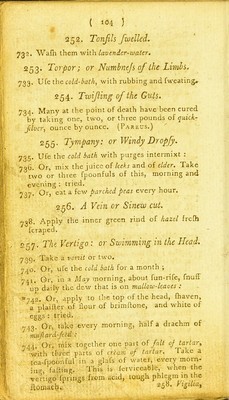 ( 104 )
252. Tonsils swelled.
732. Wash them with lavender-water.
253. Torpor; or Numbness of the Limbs.
733. Use the cold-bath, with rubbing and sweating.
254. Twisting of the Guts.
734. Many at the point of death have been cured
by taking one, two, or three pounds of quick-
silver, ounce by ounce. (PAREUS.)
255. Tympany: or Windy Dropsy.
735. Use the cold bath with purges intermixt:
736. Or, mix the juice of leeks and of elder. Take
two or three spoonfuls of this, morning and
evening: tried.
737. Or, eat a few parched peas every hour.
256. A Vein or Sinew cut.
738. Apply the inner green rind of hazel fresh
scraped.
257. The Vertigo: or Swimming in the Head.
739. Take a vomit or two.
740. Or, use the cold bath for a month;
741. Or, in a May morning, about sun-rise, snuff
up daily the dew that is on mallow-leaves:
*742. Or, apply to the top of the head, shaven,
a plaister of flour of brimstone, and white of
eggs: tried.
743. Or, take every morning, half a drachm of
mustard-seed:
744. Or, mix together one part of salt of tartar,
with three parts of cream of tartar. Take a
tea-spoonful in a glass of water, every morn-
ing, fasting. This is serviceable, when the
vertigo springs from acid, tough phlegm in the
stomach. 258. Vigilia,